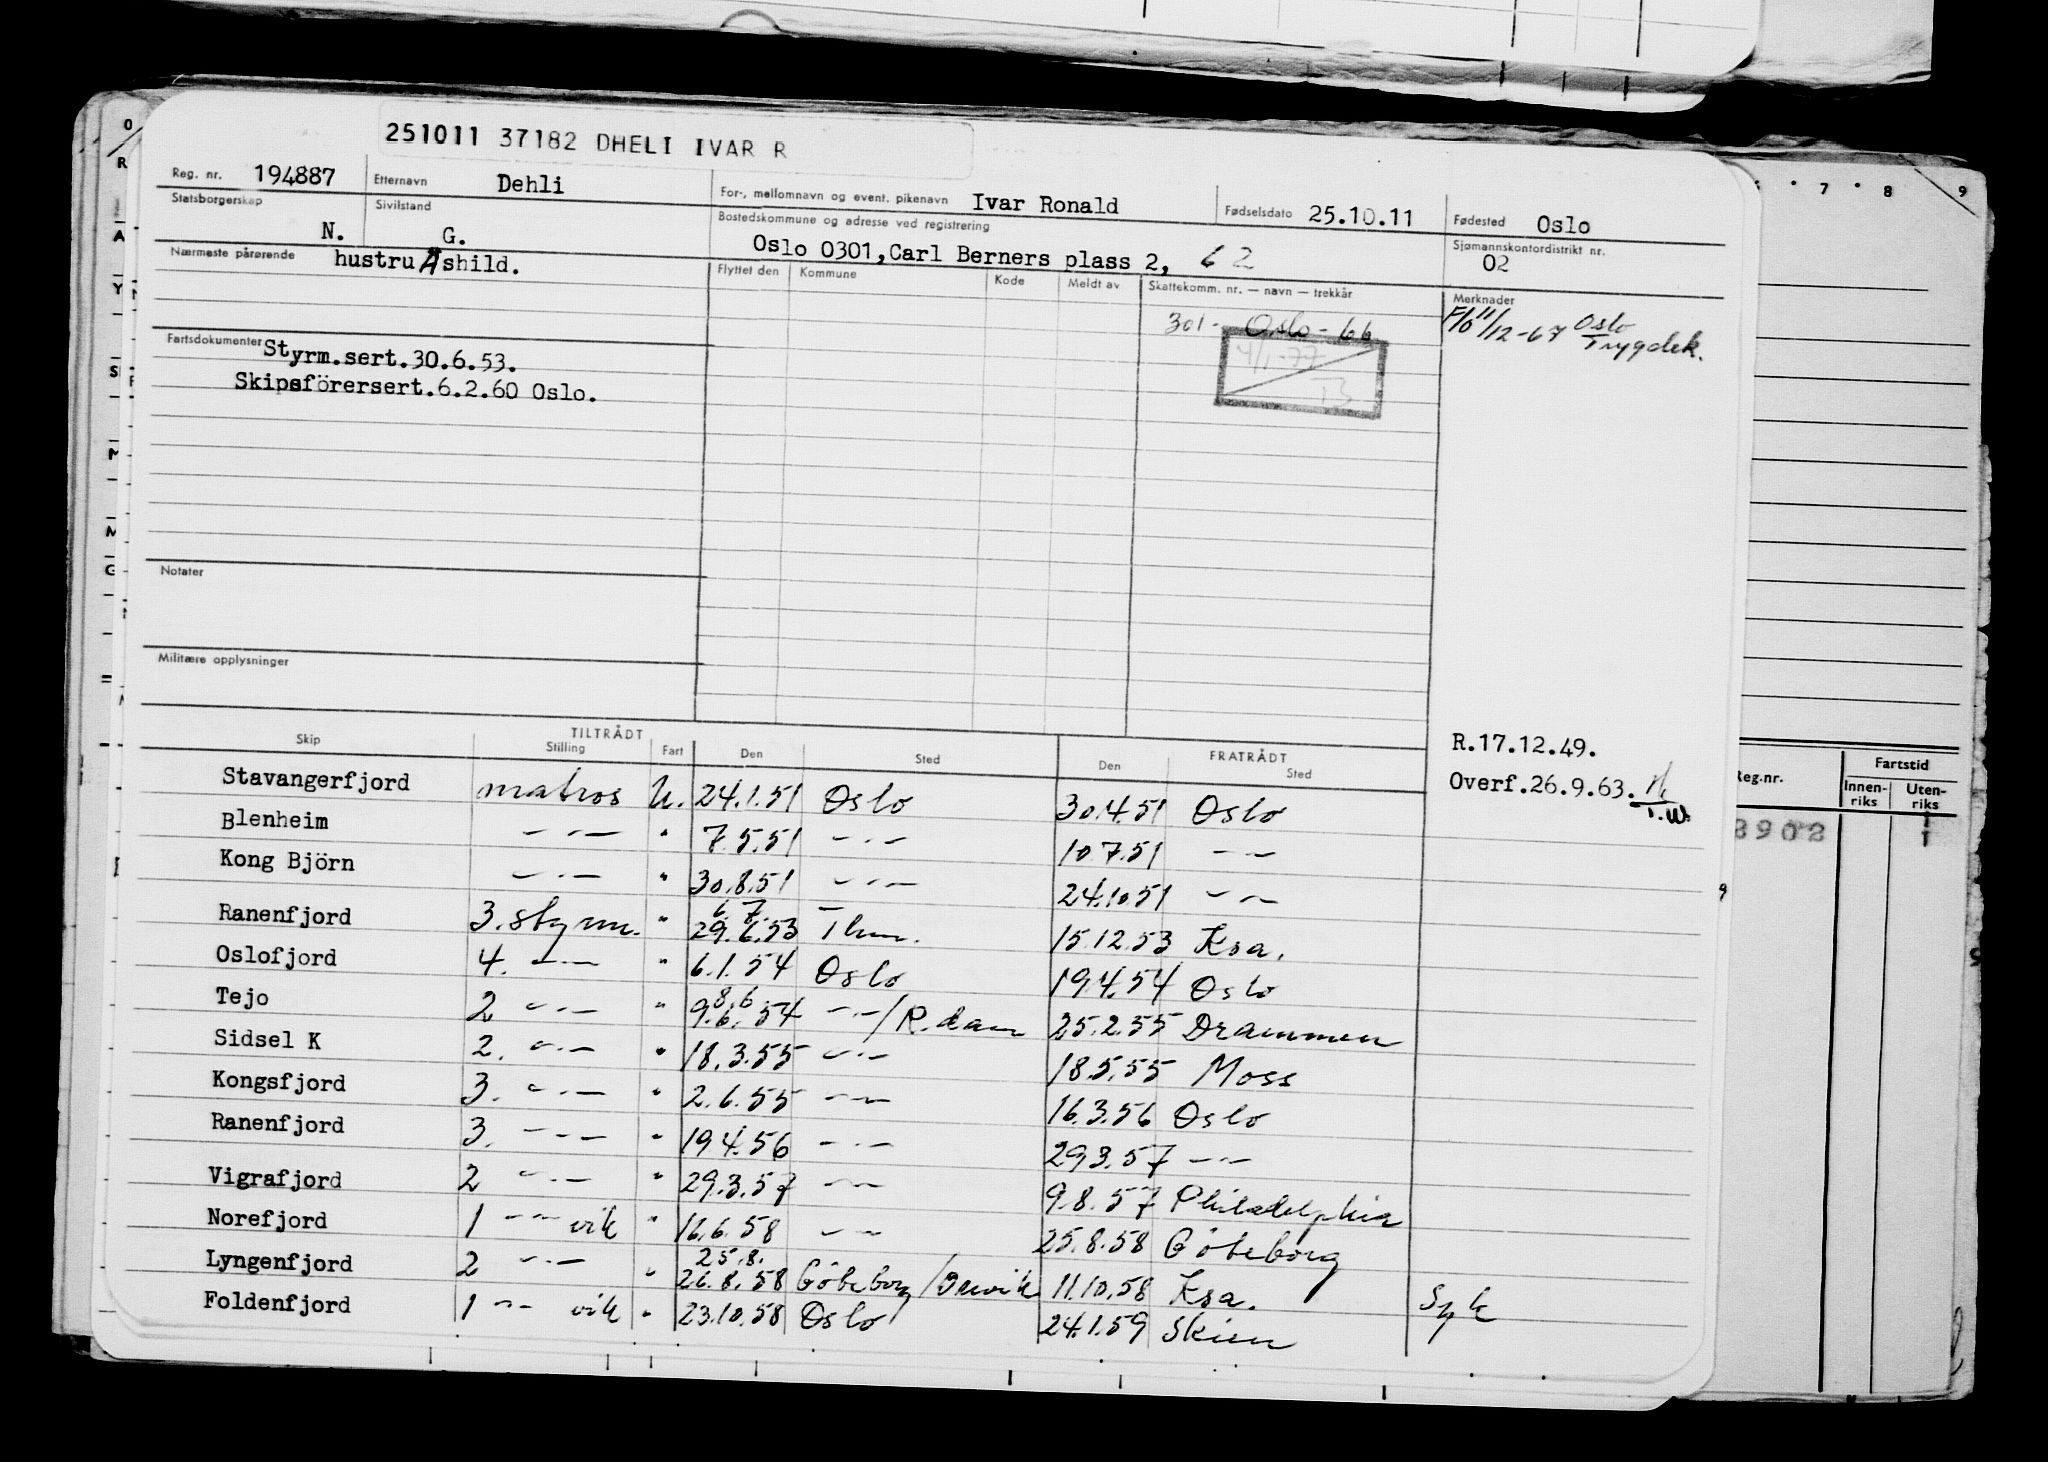 251011 37182 DHELI IVAR R
Reg. nr. 194887 Etternavn Dehli For-, mellomnavn og event. pikenavn Ivar Ronald Fødselsdato 25.10.11 Fødested Oslo
Statsborgerskap N. Sivilstand G. Bostedskommune og adresse ved registrering Oslo 0301, Carl Berners plass 2, 62 Sjømannskontordistrikt nr. 02
Nærmeste pårørende hustru Åshild.
Flyttet den Kommune Kode Meldt av Skattekomm. nr. — navn — trekkår Merknader
301 - Oslo - 66
11/12-67 Oslo Trygdek.
4/1-77
13
Fartsdokumenter Styrm.sert.30.6.53.
Skipsförersert.6.2.60 Oslo.
Notater
Militære opplysninger
R.17.12.49.
Overf.26.9.63. T.W.
Skip TILTRÅDT Stilling Fart Den Sted FRATRÅDT Den Sted
Stavangerfjord matros U. 24.1.51 Oslo 30.4.51 Oslo
Blenheim — · — " 7.5.51 — · — 10.7.51 — · —
Kong Björn — · — " 30.8.51 — · — 24.10.51 — · —
Ranenfjord 3. styrm. " 6.7. 29.6.53 Thm. 15.12.53 Ksa.
Oslofjord 4. — · — " 6.1.54 Oslo 19.4.54 Oslo
Tejo 2 — · — " 8.6 9.6.54 — · — / R.dam 25.2.55 Drammen
Sidsel K 2. — · — " 18.3.55 — · — 18.5.55 Moss
Kongsfjord 3. — · — " 2.6.55 — · — 16.3.56 Oslo
Ranenfjord 3. — · — " 19.4.56 — · — 29.3.57 — · —
Vigrafjord 2 — · — " 29.3.57 — · — 9.8.57 Philadelphia
Norefjord 1 — · — vik " 16.6.58 — · — 25.8.58 Göteborg
Lyngenfjord 2 — · — " 25.8. 26.8.58 Göteborg / 11.10.58 Ksa. Syk
Foldenfjord 1 — · — vik " 23.10.58 Oslo 24.1.59 Skien
7 8 9
Reg.nr. Fartstid
Innen-riks Uten-riks
3902